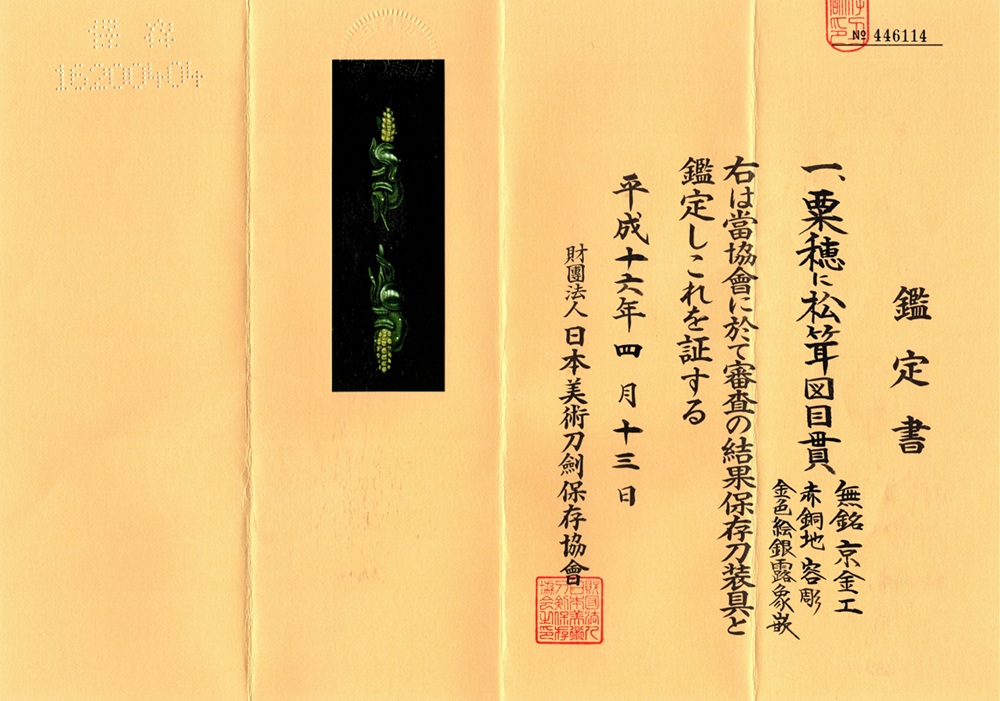 № 446114
鑑定書
一、粟穂に松茸図目貫、
無銘 京金工
赤銅地 容彫
金色絵銀露象嵌
右は當協會に於て審査の結果保存刀装具と
鑑定しこれを証する
平成十六年四月十三日
財團法人 日本美術刀劍保存協會
財団法人
日本美術
刀剣保存
協会之印
保存
16200404